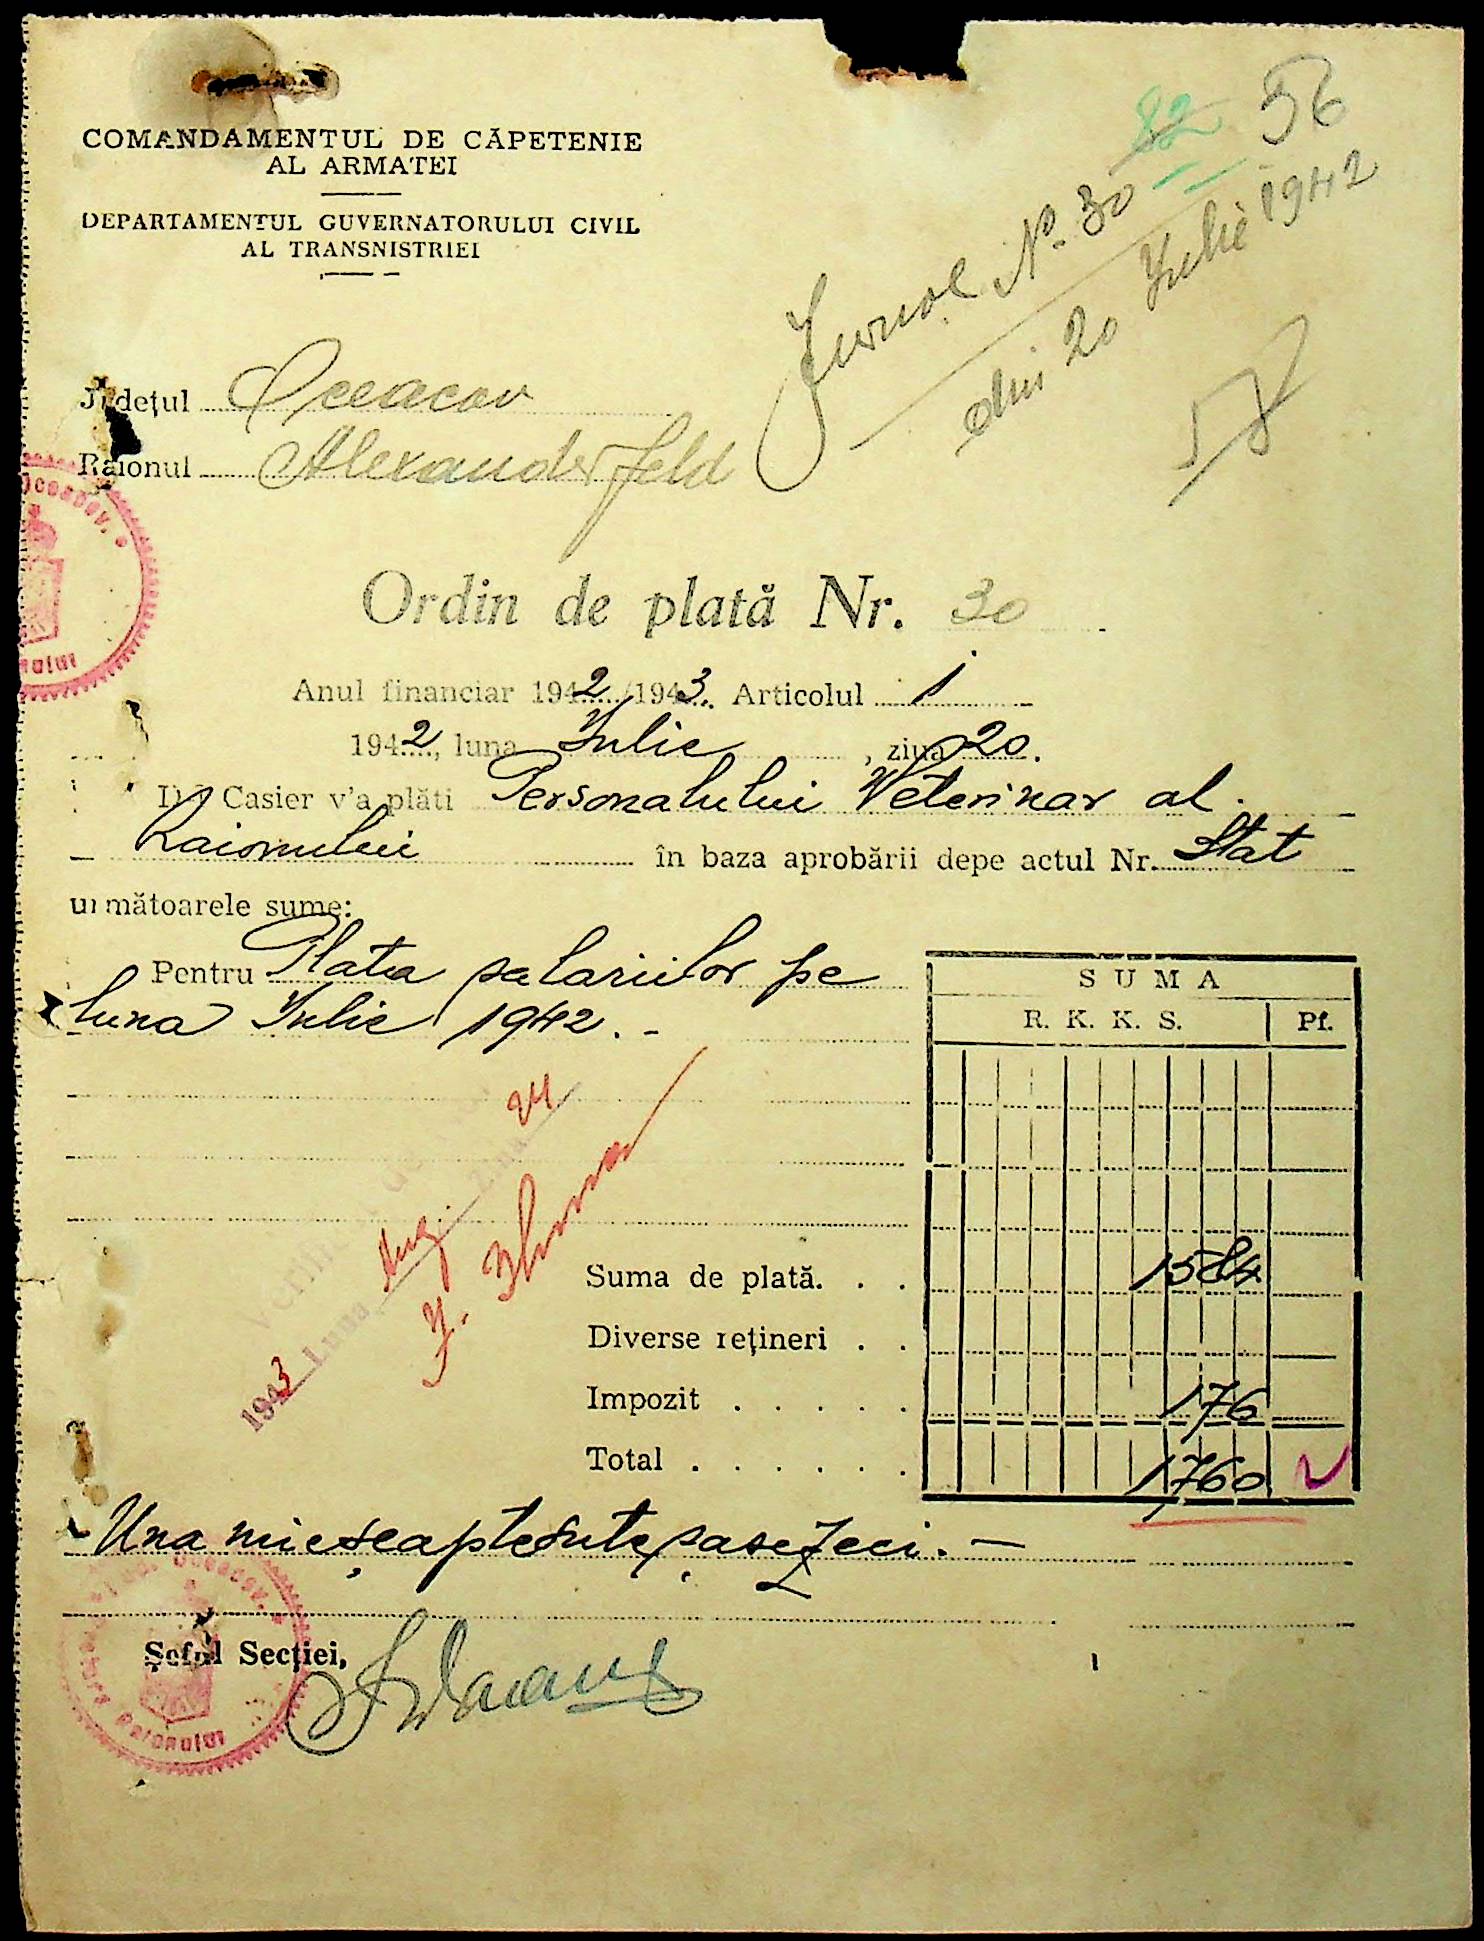 COMANDAMENTUL DE CĂPETENIE
AL ARMATEI
DEPARTAMENTUL GUVERNATORULUI CIVIL
AL TRANSNISTRIEI
82 56
Jurnal No. 30
din 20 Iulie 1942
57
Județul Oceacov
Raionul Alexanderfeld
Ordin de plată Nr. 30
Anul financiar 1942/1943. Articolul 1
1942, luna Iulie, ziua 20.
Dl Casier v'a plăti Personalului Veterinar al
Raionului în baza aprobării depe actul Nr. Stat
următoarele sume:
Pentru Plata salariilor pe
luna Iulie 1942. -
SUMA
R. K. K. S. Pf.
1943 Luna Aug. Ziua 24
Suma de plată. . . 1584
Diverse rețineri . .
Impozit . . . . . 176
Total . . . . . . 1760
Una mie șeaptesute șasezeci. —
Șeful Secției,
Oceacov.
Raionului